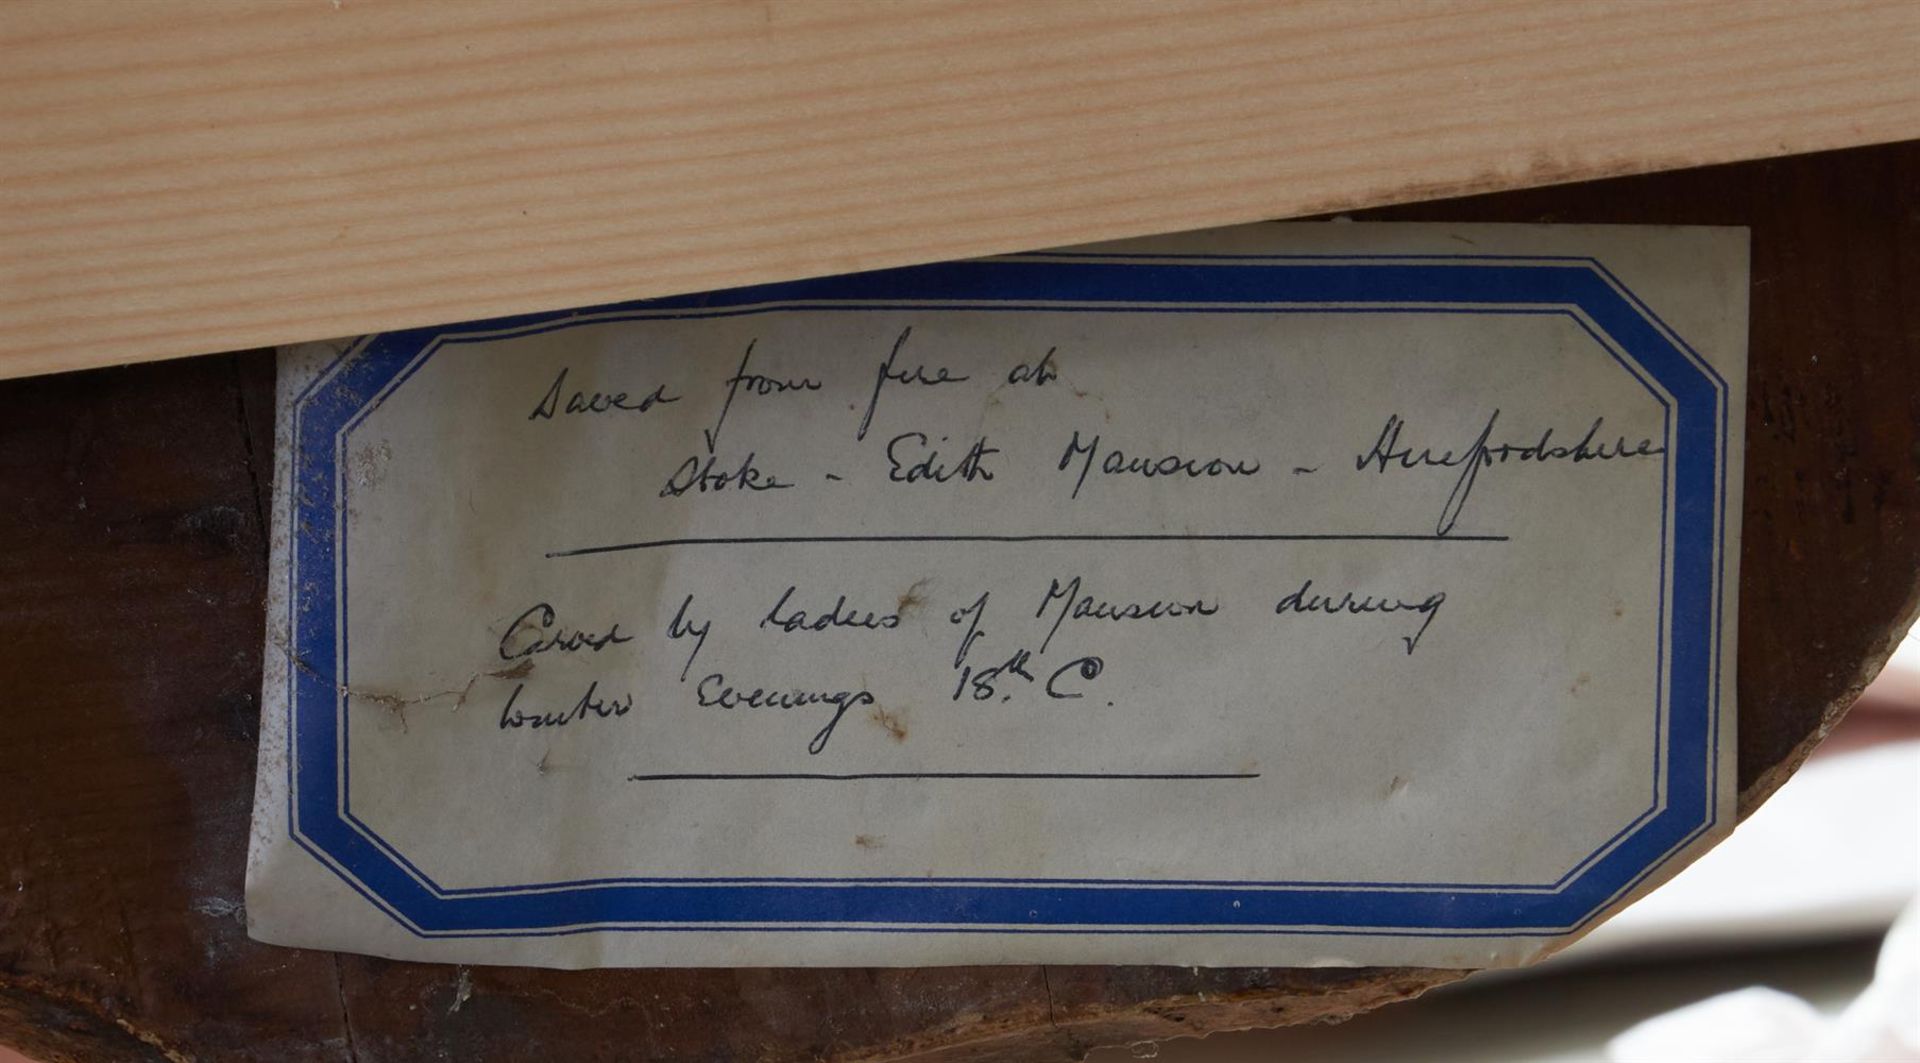 Saved from fire at
Stoke - Edith Mansion - Herefordshire
Carved by ladies of Mansion during
winter Evenings 18th. C.